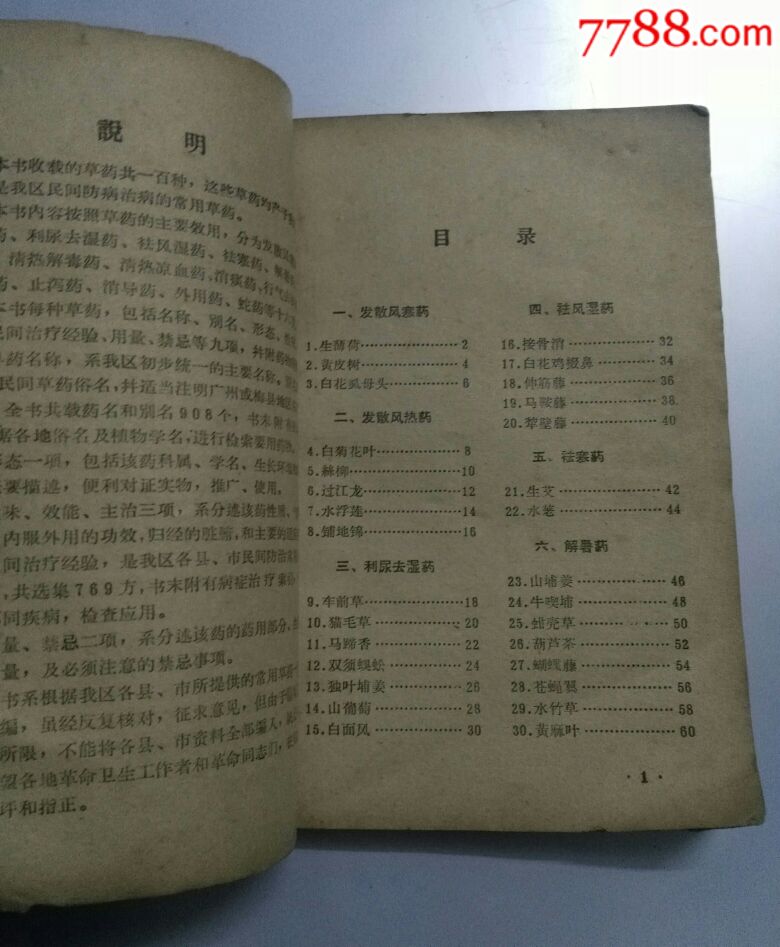 7788.com
說 明
本书收载的草药共一百种，这些草药
是我区民间防病治病的常用草药。
本书内容按照草药的主要效用，分为发散风寒
药、利尿去湿药、祛风湿药、祛寒药、
清热解毒药、清热凉血药、消痰药、行气
、止泻药、消导药、外用药、蛇药等十
本书每种草药，包括名称、别名、形态、
民间治疗经验、用量、禁忌等九项，并附药
药名称，系我区初步统一的主要名称，
民间草药俗名，并适当注明广州或梅县地区
全书共载药名和别名908个，书末附有
据各地俗名及植物学名，进行检索要用药物。
形态一项，包括该药科属、学名、生长环境
扼要描述，便利对证实物，推广、使用。
味、效能、主治三项，系分述该药性质、
内服外用的功效，归经的脏腑，和主要的适应
间治疗经验，是我区各县、市民间防治常
，共选集769方，书末附有病症治疗索
同疾病，检查应用。
量、禁忌二项，系分述该药的药用部分，
量，及必须注意的禁忌事项。
书系根据我区各县、市所提供的常用草药
编，虽经反复核对，征求意见，但由于
所限，不能将各县、市资料全部编入，
望各地革命卫生工作者和革命同志们，
评和指正。
目 录
一、发散风寒药
1.生薄荷⋯⋯2
2.黄皮树⋯⋯4
3.白花虱母头⋯⋯6
二、发散风热药
4.白菊花叶⋯⋯8
5.絲柳⋯⋯10
6.过江龙⋯⋯12
7.水浮莲⋯⋯14
8.铺地锦⋯⋯16
三、利尿去湿药
9.车前草⋯⋯18
10.猫毛草⋯⋯20
11.马蹄香⋯⋯22
12.双须蜈蚣⋯⋯24
13.独叶埔姜⋯⋯26
14.山葡萄⋯⋯28
15.白面风⋯⋯30
四、祛风湿药
16.接骨消⋯⋯32
17.白花鸡掇鼻⋯⋯34
18.伸筋藤⋯⋯36
19.马鞍藤⋯⋯38
20.犂壁藤⋯⋯40
五、祛寒药
21.生艾⋯⋯42
22.水荖⋯⋯44
六、解暑药
23.山埔姜⋯⋯46
24.牛喫埔⋯⋯48
25.蚶壳草⋯⋯50
26.葫芦茶⋯⋯52
27.蝴蠳藤⋯⋯54
28.苍蝇翼⋯⋯56
29.水竹草⋯⋯58
30.黄麻叶⋯⋯60
· 1 ·